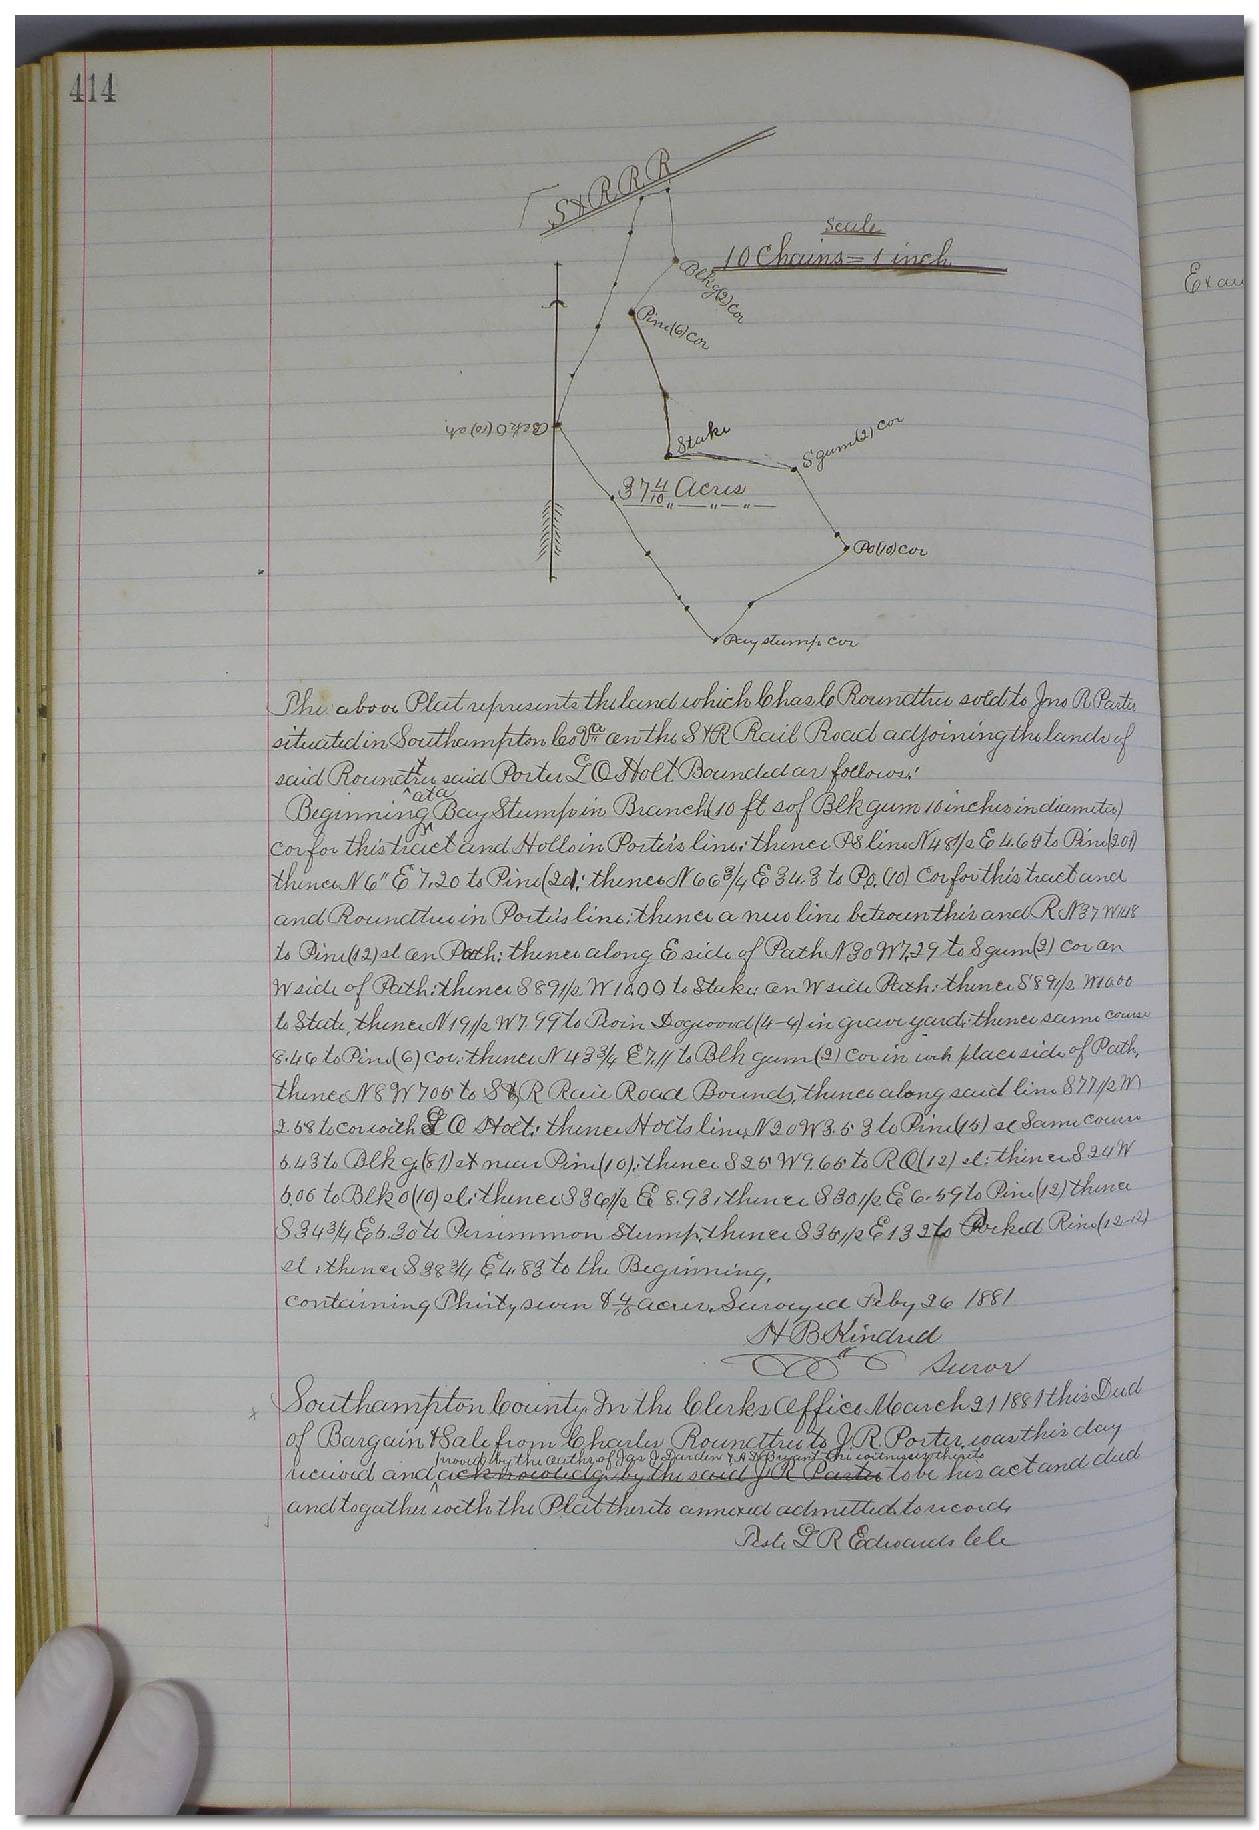 414
S&RRR
Scale
10 Chains = 1 inch
Blkg(2)cor
Pine(6)cor
BlkO(10)sl.
Stake
Sgum(2)cor
37 4/10 Acres
Po(10)cor
Bay stump cor
Exam
The above Plat represents the land which Chas C Roundtree sold to Jno R Porter
situated in Southampton Co Va on the S&R Rail Road adjoining the lands of
said Roundtree said Porter & O Holt Bounded as follows:
Beginning at a Bay Stump in Branch (10 ft s of Blk gum 10 inches in diameter)
cor for this tract and Holt's in Porter's line: thence PS line N 48 1/2 E 4.64 to Pine (20)
thence N 6" E 7.20 to Pine (20): thence N 66 3/4 E 34.3 to Po. (10) Cor for this tract and
and Roundtree in Porter's line: thence a new line between this and R. N 37 W 1.48
to Pine (12) sl on Path: thence along E side of Path N 30 W 7.29 to S gum (2) cor on
W side of Path: thence S 89 1/2 W 10.00 to Stake on W side Path: thence S 89 1/2 W 10.00
to State, thence N 19 1/2 W 7.99 to Dogwood (4-4) in grave yard: thence same course
8.46 to Pine (6) cor: thence N 43 3/4 E 7.11 to Blk gum (2) cor in place side of Path,
thence N 8 W 705 to S & R Rail Road Bounds, thence along said line S 77 1/2 W
2.58 to cor with O Holt: thence Holts line N 20 W 3.53 to Pine (15) sl Same course
5.43 to Blk g. (81) sl near Pine (10): thence S 25 W 9.65 to R O (12) sl: thence S 24 W
5.00 to Blk O (10) sl: thence S 36 1/2 E 8.93: thence S 30 1/2 E 6.59 to Pine (12) thence
S 34 3/4 E 5.30 to Persimmon Stump, thence S 35 1/2 E 132 to Forked Pine (12-12)
sl: thence S 38 3/4 E 4.83 to the Beginning,
containing Thirty seven & 4/10 acres. Surveyed Feby 26 1881
H B Kindred
Suror
Southampton County: In the Clerks Office March 21 1881 this Deed
of Bargain & Sale from Charles Roundtree to J. R. Porter, was this day
proved by the oaths of Jas J Darden & A S Bryant the witnesses thereto
received and acknowledge by the said J. R. Porter to be his act and deed
and togather with the Plat thereto annexed admitted to record
Teste L R Edwards Clk